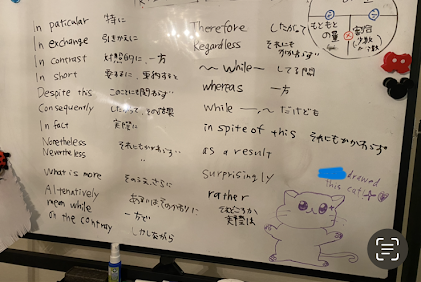 In paticular 特に
In exchange 引きかえに
In contrast 対照的に, 一方
In short 要するに, 要約すると
Despite this このことにも関わらず
Consequently したがって, その結果
In fact 実際に
Noretheless
Nevertheless それにもかかわらず
What is more そのうえ, さらに
Alternatively あるいはその代わりに
mean while 一方で
on the contrary しかしながら
Therefore したがって
Regardless それにもかかわらず
〜 while 〜 してる間
whereas 一方
while 〜, 〜 だけども
in spite of this それにもかかわらず
as a result
surprisingly
rather それどころか 実際は
もともとの量
割合
drawed
this cat